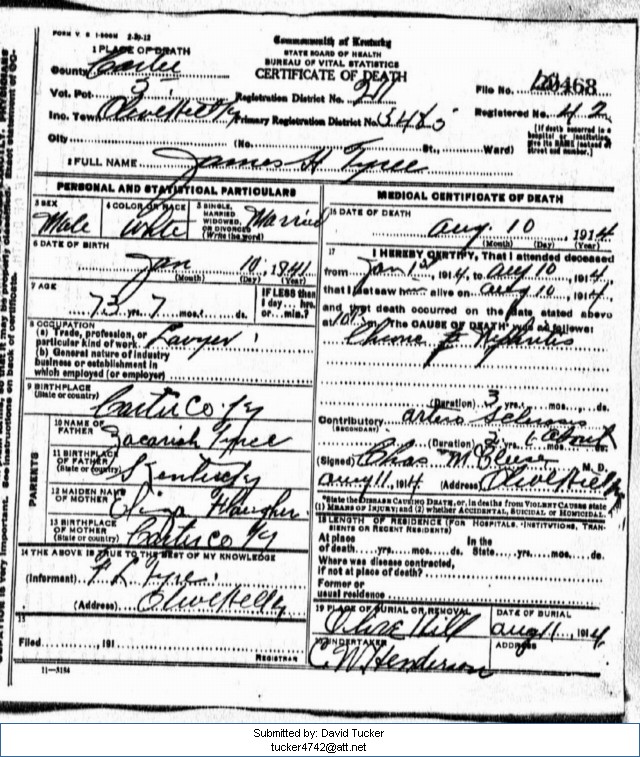 FORM V. S. 1-500M 2-21-12
Commonwealth of Kentucky
STATE BOARD OF HEALTH
BUREAU OF VITAL STATISTICS
CERTIFICATE OF DEATH
1 PLACE OF DEATH
County Carter
Vot. Pct 3
Registration District No.
File No. 468
Inc. Town Olive Hill Ky
Primary Registration District No. 5485
Registered No. 42
City (No. St., Ward)
[If death occurred in a hospital or institution, give its NAME instead of street and number.]
2 FULL NAME James H Tyree
PERSONAL AND STATISTICAL PARTICULARS
3 SEX
Male
4 COLOR OR RACE
White
5 SINGLE, MARRIED WIDOWED, OR DIVORCED (Write the word)
Married
6 DATE OF BIRTH
Jan 10, 1841
(Month) (Day) (Year)
7 AGE
73 yrs. 7 mos. ds.
IF LESS than 1 day... hrs. or... min.?
8 OCCUPATION
(a) Trade, profession, or particular kind of work Lawyer
(b) General nature of industry business or establishment in which employed (or employer)
9 BIRTHPLACE
(State or country)
Carter Co Ky
PARENTS
10 NAME OF FATHER
Zacariah Tyree
11 BIRTHPLACE OF FATHER
(State or country)
Kentucky
12 MAIDEN NAME OF MOTHER
Eliza Flaugher
13 BIRTHPLACE OF MOTHER
(State or country)
Carter Co Ky
14 THE ABOVE IS TRUE TO THE BEST OF MY KNOWLEDGE
(Informent) Tyree
(Address) Olive Hill Ky
15
Filed, 191
REGISTRAR
11-3184
MEDICAL CERTIFICATE OF DEATH
16 DATE OF DEATH
Aug 10, 1914
(Month) (Day) (Year)
17 I HEREBY CERTIFY, That I attended deceased
from Jan 1, 1914, to Aug 10, 1914
that I last saw h alive on Aug 10, 1914,
and that death occurred on the date stated above
at m. The CAUSE OF DEATH was as follows:
(Duration) 3 yrs. mos. ds.
Contributory
(SECONDARY)
(Duration)
(Signed) Chas M M. D.
Aug 11, 1914 (Address) Olive Hill Ky
*State the DISEASE CAUSING DEATH, or, in deaths from VIOLENT CAUSES state (1) MEANS OF INJURY; and (2) whether ACCIDENTAL, SUICIDAL or HOMICIDAL.
18 LENGTH OF RESIDENCE (FOR HOSPITALS, INSTITUTIONS, TRANSIENTS OR RECENT RESIDENTS)
At place of death yrs. mos. ds. In the State yrs. mos. ds.
Where was disease contracted, if not at place of death?
Former or usual residence
19 PLACE OF BURIAL OR REMOVAL
Olive Hill
DATE OF BURIAL
Aug 11, 1914
UNDERTAKER
C W Henderson
ADDRESS
Submitted by: David Tucker
tucker4742@att.net